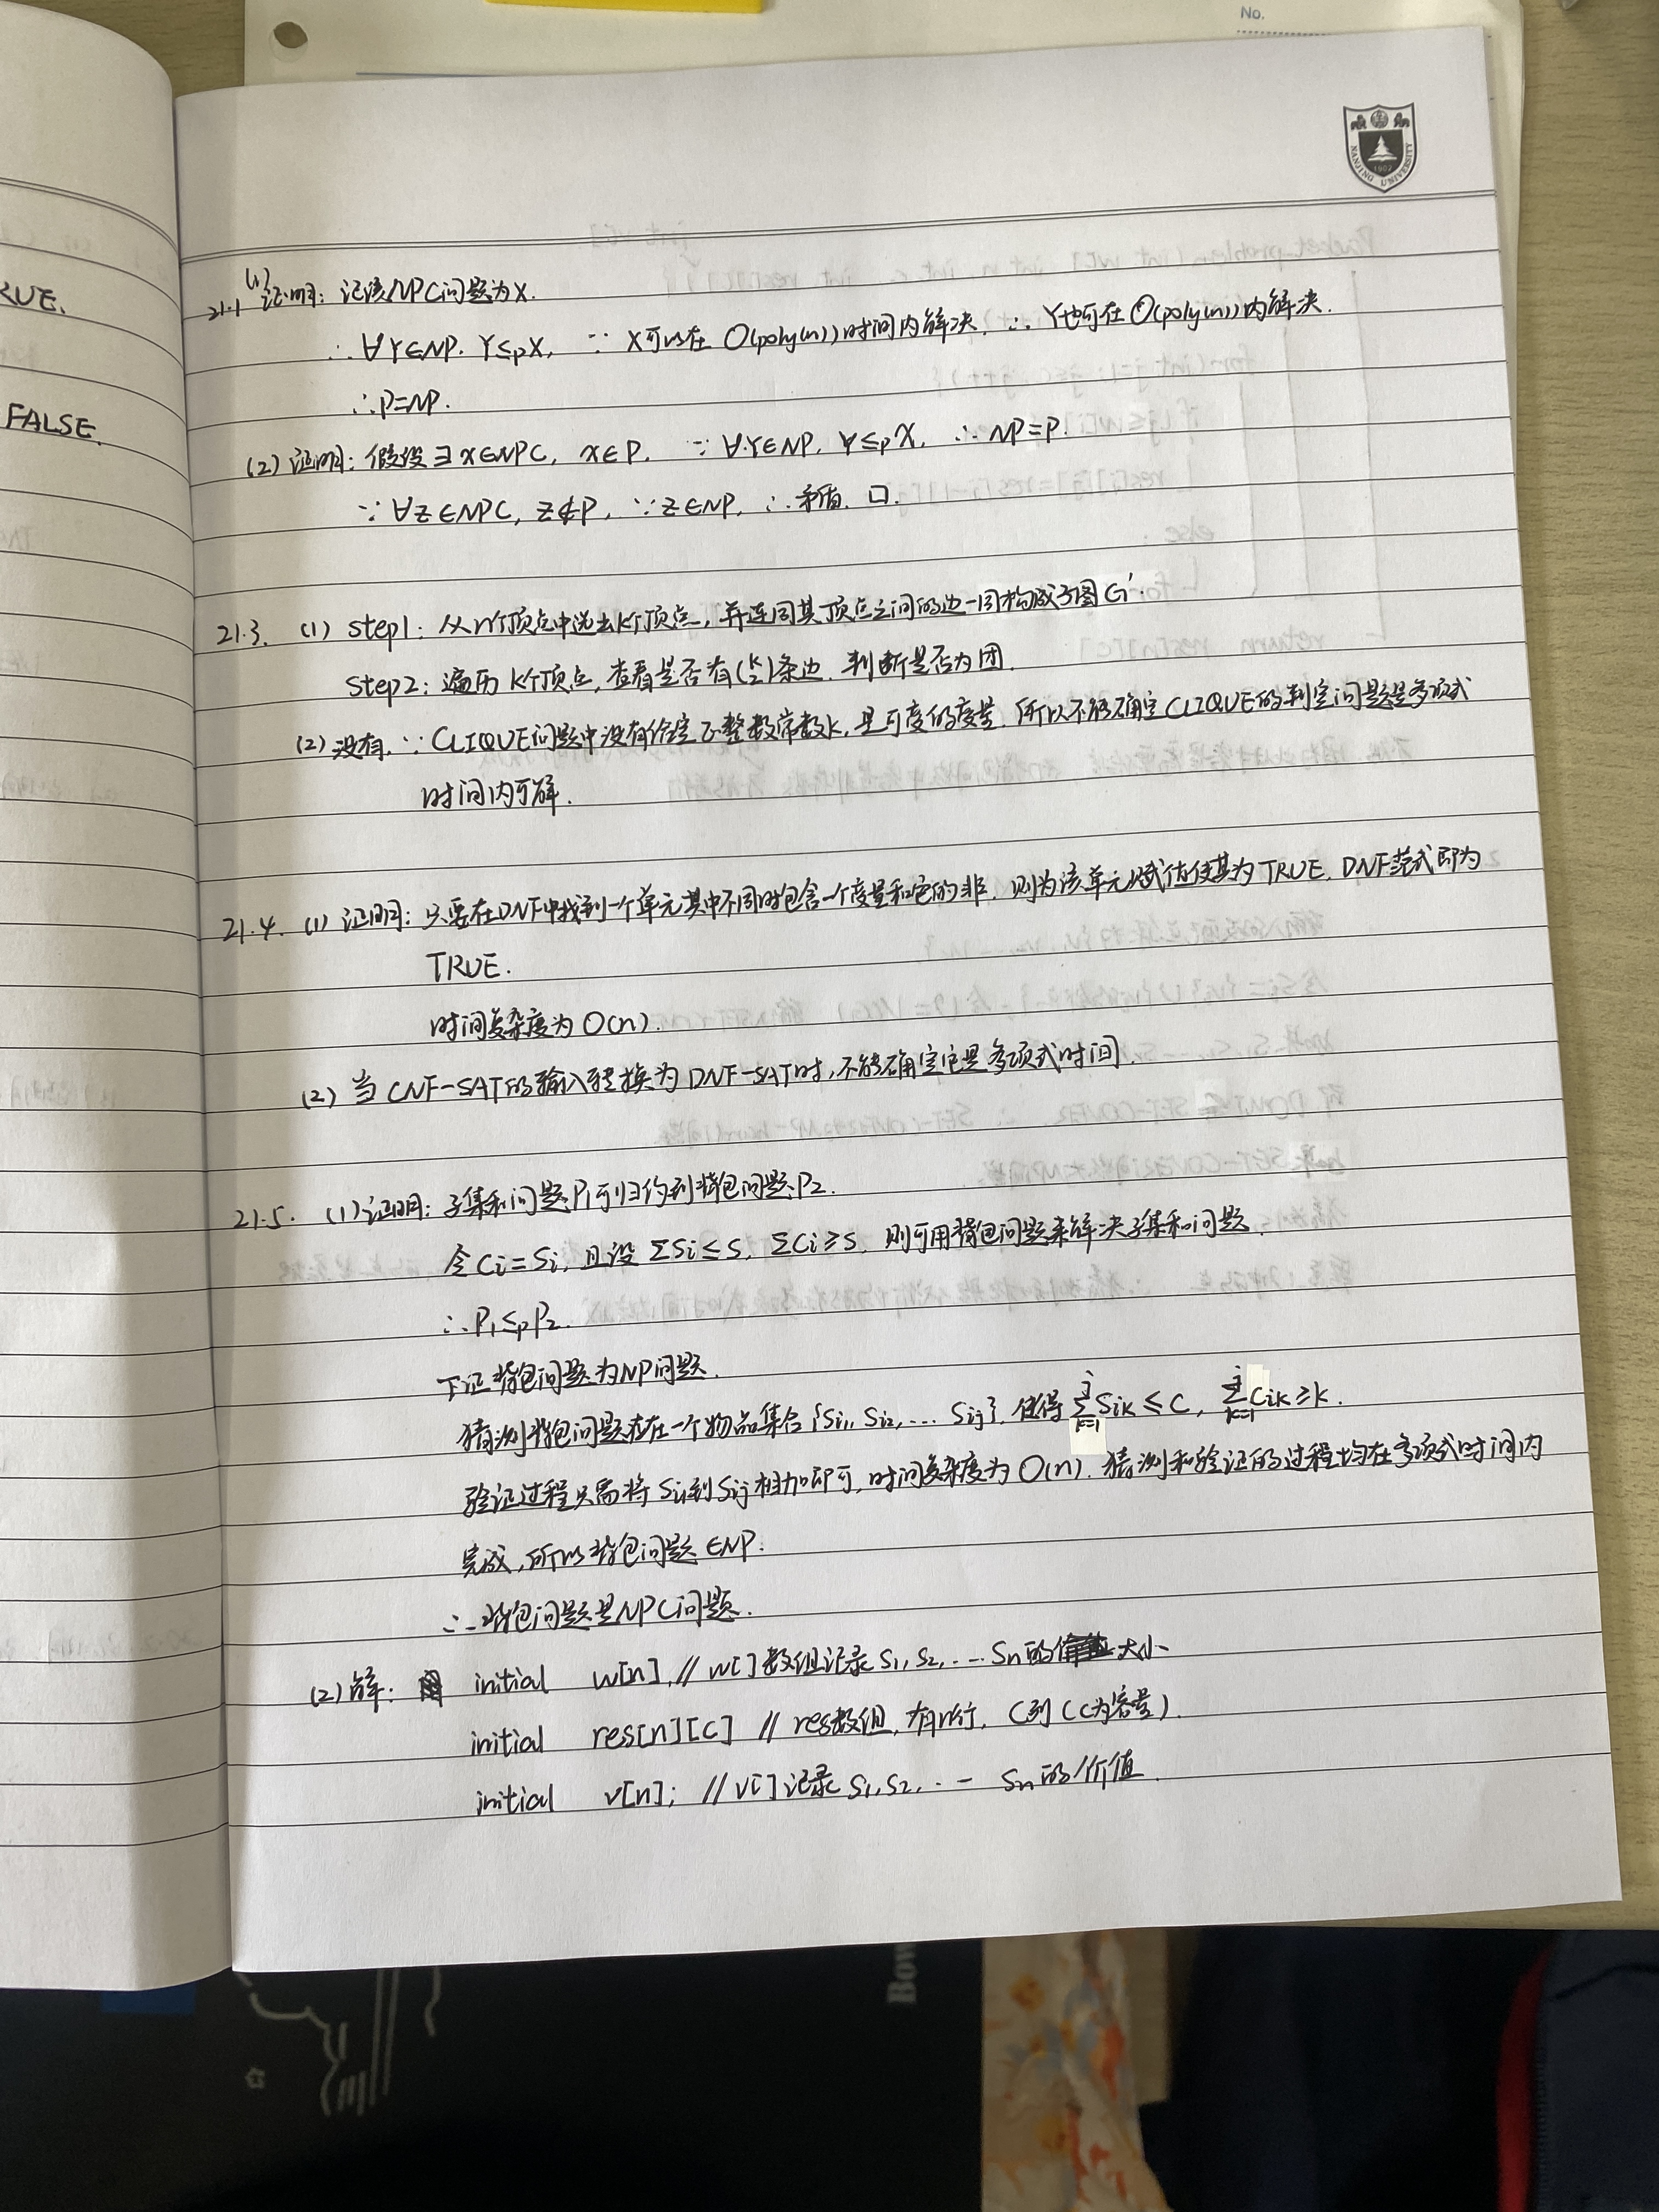 No.
NANJING UNIVERSITY
1902
RUE.
FALSE.
21.1 (1) 证明: 记该NPC问题为X.
∴ ∀Y∈NP. Y≤pX, ∵ X可以在 O(poly(n))时间内解决, ∴ Y也可在 O(poly(n))内解决.
∴P=NP.
(2) 证明: 假设∃X∈NPC, X∈P, ∵ ∀Y∈NP, Y≤pX, ∴ NP=P.
∵ ∀Z∈NPC, Z∉P, ∵Z∈NP, ∴矛盾. □.
21.3. (1) step1: 从n个顶点中选出k个顶点, 并连同其顶点之间的边一同构成子图G'.
step2: 遍历 k个顶点, 查看是否有(k 2)条边. 判断是否为团.
(2) 没有, ∵ CLIQUE问题中没有给定正整数常数k, 是可变的变量. 所以不能确定CLIQUE的判定问题是多项式
时间内可解.
21.4. (1) 证明: 只要在DNF中找到一个单元其中不同时包含一个变量和它的非. 则为该单元赋值使其为TRUE, DNF范式即为
TRUE.
时间复杂度为O(n).
(2) 当 CNF-SAT的输入转换为 DNF-SAT时, 不能确定它是多项式时间.
21.5. (1) 证明: 子集和问题P1可归约到背包问题P2.
令Ci=Si, 且设 ΣSi≤S, ΣCi≥S, 则可用背包问题来解决子集和问题.
∴P1≤pP2.
下证背包问题为NP问题.
猜测背包问题存在一个物品集合{Si1, Si2, ... Sij}, 使得 Σ(k=1→j) Sik ≤ C, Σ(k=1→j) Cik ≥ k.
验证过程只需将 Si1到Sij 相加即可, 时间复杂度为 O(n). 猜测和验证的过程均在多项式时间内
完成, 所以背包问题∈NP.
∴背包问题是NPC问题.
(2) 解: initial w[n], // w[]数组记录 S1, S2, ... Sn的大小
initial res[n][C] // res数组, 有n行, C列 (C为容量).
initial v[n]; // v[]记录 S1, S2, ... Sn的价值
Bow